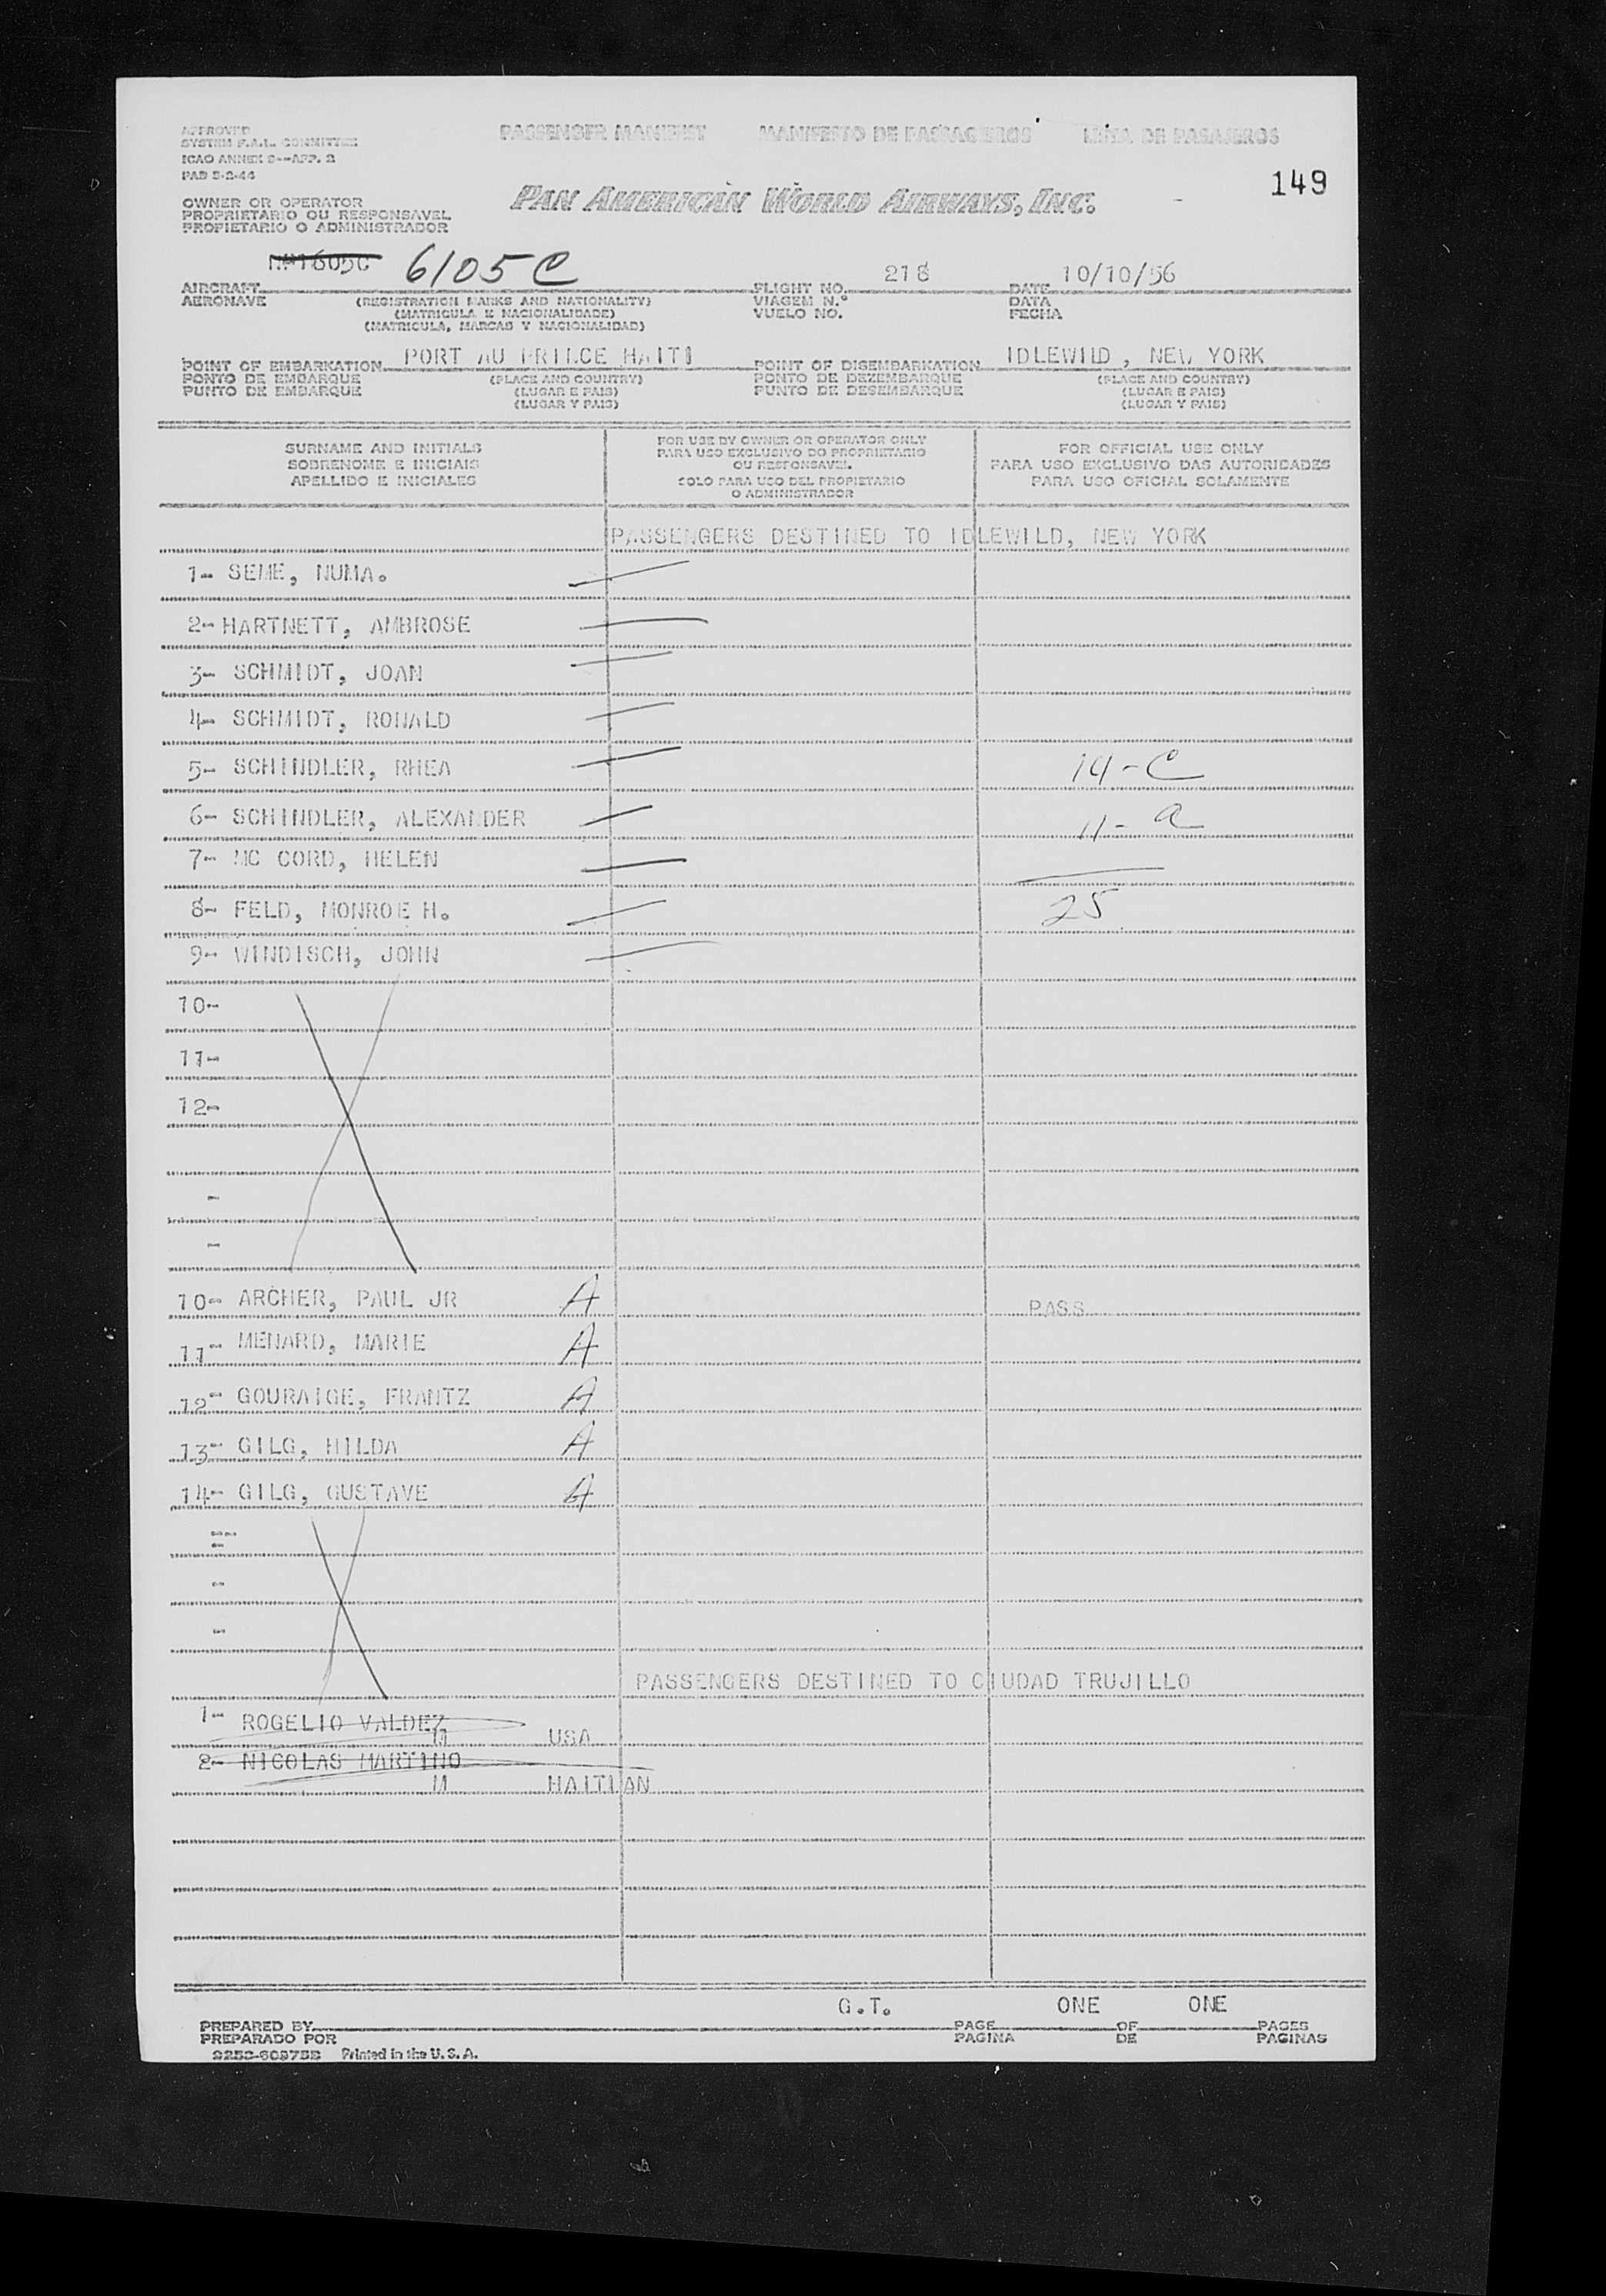 APPROVED
SYSTEM F.A.L. COMMITTEE
ICAO ANNEX 9--APP. 2
PAD 5-2-44
PASSENGER MANIFEST MANIFESTO DE PASSAGEIROS LISTA DE PASAJEROS
149
PAN AMERICAN WORLD AIRWAYS, INC.
OWNER OR OPERATOR
PROPRIETARIO OU RESPONSAVEL
PROPIETARIO O ADMINISTRADOR
6105C 218 10/10/56
AIRCRAFT FLIGHT NO. DATE
AERONAVE (REGISTRATION MARKS AND NATIONALITY) VIAGEM N.º DATA
(MATRICULA E NACIONALIDADE) VUELO NO. FECHA
(MATRICULA, MARCAS Y NACIONALIDAD)
POINT OF EMBARKATION PORT AU PRINCE HAITI POINT OF DISEMBARKATION IDLEWILD, NEW YORK
PONTO DE EMBARQUE (PLACE AND COUNTRY) PONTO DE DEZEMBARQUE (PLACE AND COUNTRY)
PUNTO DE EMBARQUE (LUGAR E PAIS) PUNTO DE DESEMBARQUE (LUGAR E PAIS)
(LUGAR Y PAIS) (LUGAR Y PAIS)
SURNAME AND INITIALS
SOBRENOME E INICIAIS
APELLIDO E INICIALES
FOR USE BY OWNER OR OPERATOR ONLY
PARA USO EXCLUSIVO DO PROPRIETARIO
OU RESPONSAVEL
SOLO PARA USO DEL PROPIETARIO
O ADMINISTRADOR
FOR OFFICIAL USE ONLY
PARA USO EXCLUSIVO DAS AUTORIDADES
PARA USO OFICIAL SOLAMENTE
PASSENGERS DESTINED TO IDLEWILD, NEW YORK
1- SEME, NUMA.
2- HARTNETT, AMBROSE
3- SCHMIDT, JOAN
4- SCHMIDT, RONALD
5- SCHINDLER, RHEA 14-C
6- SCHINDLER, ALEXANDER 11-a
7- MC CORD, HELEN
8- FELD, MONROE H. 25
9- WINDISCH, JOHN
10-
11-
12-
-
-
10- ARCHER, PAUL JR A PASS
11- MENARD, MARIE A
12- GOURAIGE, FRANTZ A
13- GILG, HILDA A
14- GILG, GUSTAVE A
PASSENGERS DESTINED TO CIUDAD TRUJILLO
1- ROGELIO VALDEZ
M USA
2- NICOLAS MARTINO
M HAITIAN
G.T. ONE ONE
PREPARED BY PAGE OF PAGES
PREPARADO POR PAGINA DE PAGINAS
Printed in the U. S. A.